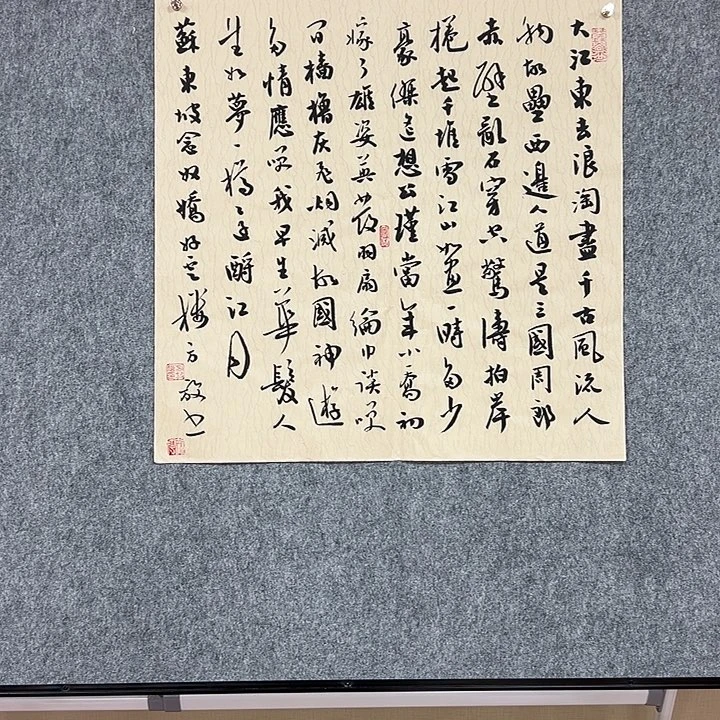 大江東去浪淘盡千古風流人
物故壘西邊人道是三國周郎
赤壁亂石穿空驚濤拍岸
捲起千堆雪江山如畫一時多少
豪傑遙想公瑾當年小喬初
嫁了雄姿英發羽扇綸巾談笑
間檣櫓灰飛烟滅故國神遊
多情應笑我早生華髮人
生如夢一樽還酹江月
蘇東坡念奴嬌